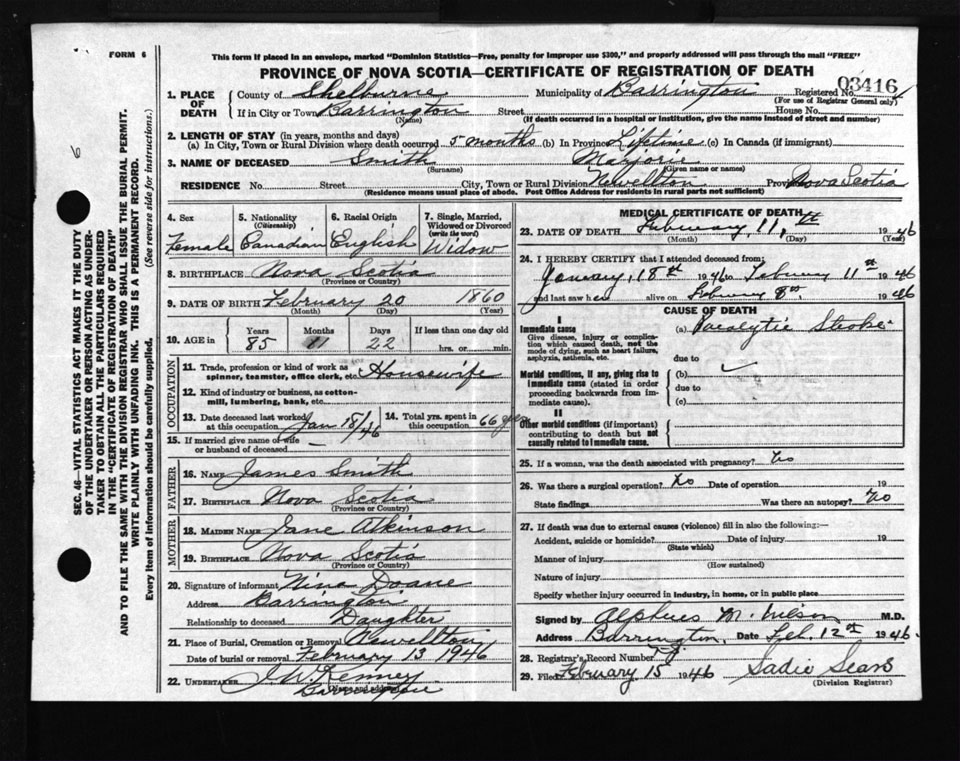 FORM 6
This form if placed in an envelope, marked "Dominion Statistics—Free, penalty for improper use $300," and properly addressed will pass through the mail "FREE"
PROVINCE OF NOVA SCOTIA—CERTIFICATE OF REGISTRATION OF DEATH
03416
1. PLACE OF DEATH County of Shelburne Municipality of Barrington Registered No.
(For use of Registrar General only)
If in City or Town Barrington Street House No.
(Name) (If death occurred in a hospital or institution, give the name instead of street and number)
2. LENGTH OF STAY (in years, months and days)
(a) In City, Town or Rural Division where death occurred 5 months (b) In Province Lifetime (c) In Canada (if immigrant)
3. NAME OF DECEASED Smith Marjorie
(Surname) (Given name or names)
RESIDENCE No. Street City, Town or Rural Division Newellton Province Nova Scotia
(Residence means usual place of abode. Post Office Address for residents in rural parts not sufficient)
SEC. 46—VITAL STATISTICS ACT MAKES IT THE DUTY
OF THE UNDERTAKER OR PERSON ACTING AS UNDER-
TAKER TO OBTAIN ALL THE PARTICULARS REQUIRED
IN THE "CERTIFICATE OF REGISTRATION OF DEATH"
AND TO FILE THE SAME WITH THE DIVISION REGISTRAR WHO SHALL ISSUE THE BURIAL PERMIT.
WRITE PLAINLY WITH UNFADING INK. THIS IS A PERMANENT RECORD.
Every item of information should be carefully supplied. (See reverse side for instructions.)
6
4. Sex
Female
5. Nationality
(Citizenship)
Canadian
6. Racial Origin
English
7. Single, Married,
Widowed or Divorced
(write the word)
Widow
8. BIRTHPLACE Nova Scotia
(Province or Country)
9. DATE OF BIRTH February 20 1860
(Month) (Day) (Year)
10. AGE in Years Months Days If less than one day old
85 11 22 hrs. or min.
OCCUPATION
11. Trade, profession or kind of work as
spinner, teamster, office clerk, etc. Housewife
12. Kind of industry or business, as cotton-
mill, lumbering, bank, etc.
13. Date deceased last worked
at this occupation Jan 18/46
14. Total yrs. spent in
this occupation 66 yrs
15. If married give name of wife
or husband of deceased —
FATHER
16. NAME James Smith
17. BIRTHPLACE Nova Scotia
(Province or Country)
MOTHER
18. MAIDEN NAME Jane Atkinson
19. BIRTHPLACE Nova Scotia
(Province or Country)
20. Signature of informant Nina Doane
Address Barrington
Relationship to deceased Daughter
21. Place of Burial, Cremation or Removal Newellton
Date of burial or removal February 13 1946
22. UNDERTAKER J. W. Kenney
(Name and address) Barrington
MEDICAL CERTIFICATE OF DEATH
23. DATE OF DEATH February, 11,th 1946
(Month) (Day)
24. I HEREBY CERTIFY that I attended deceased from:
January, 18st 1946 to February 11st 1946
and last saw her alive on February 8st. 1946
CAUSE OF DEATH
I
Immediate cause
Give disease, injury or complica-
tion which caused death, not the
mode of dying, such as heart failure,
asphyxia, asthenia, etc.
(a) Paralytic Stroke.
due to
Morbid conditions, if any, giving rise to
immediate cause (stated in order
proceeding backwards from im-
mediate cause).
(b)
due to
(c)
II
Other morbid conditions (if important)
contributing to death but not
causally related to immediate cause.
25. If a woman, was the death associated with pregnancy? No
26. Was there a surgical operation? No Date of operation 19
State findings Was there an autopsy? No
27. If death was due to external causes (violence) fill in also the following:—
Accident, suicide or homicide? Date of injury 19
(State which)
Manner of injury
(How sustained)
Nature of injury
Specify whether injury occurred in industry, in home, or in public place
Signed by Alpheus M. Wilson M.D.
Address Barrington, Date Feb. 12st 1946.
28. Registrar's Record Number
29. Filed February 15 1946 Sadie Sears
(Division Registrar)